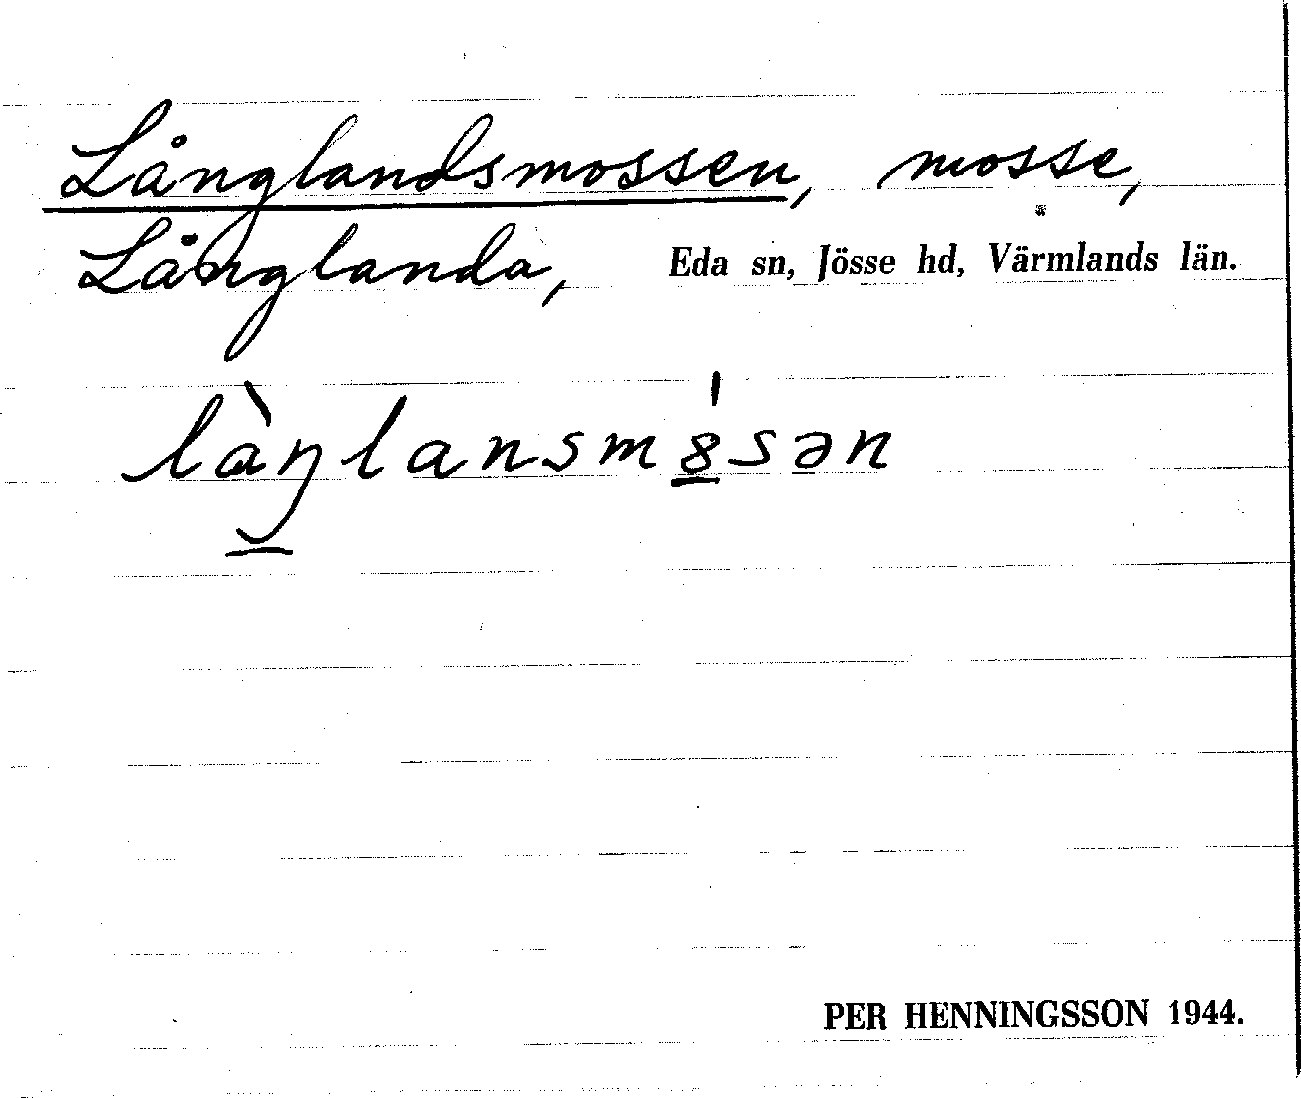 Långlandsmossen, mosse,
Långlanda, Eda sn, Jösse hd, Värmlands län.
làŋlansm8̲́sən
PER HENNINGSSON 1944.